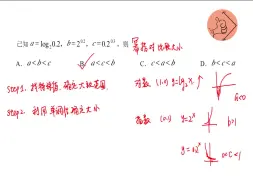 已知 a=log₂0.2, b=2^0.2, c=0.2^0.3, 则 幂指对比较大小
A. a<b<c B. a<c<b C. c<a<b D. b<c<a
step1. 找特殊值,确定大致范围
对数 (1,0) y=log₂x
a<0
step2. 利用单调性确定大小
指数 (0,1) y=2^x b>1
y=0.2^x 0<c<1